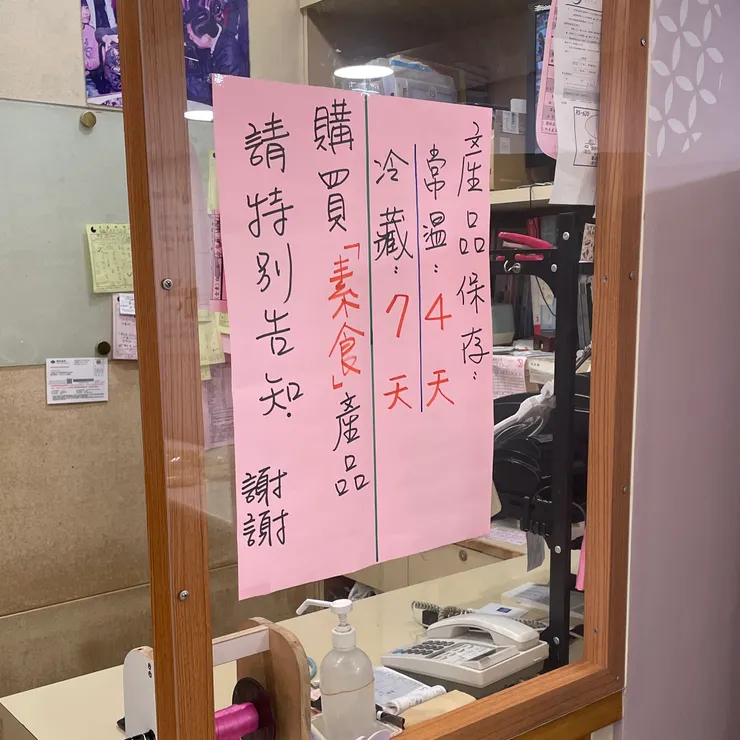 產品保存:
常溫:4天
冷藏:7天
購買「素食」產品
請特別告知.謝謝